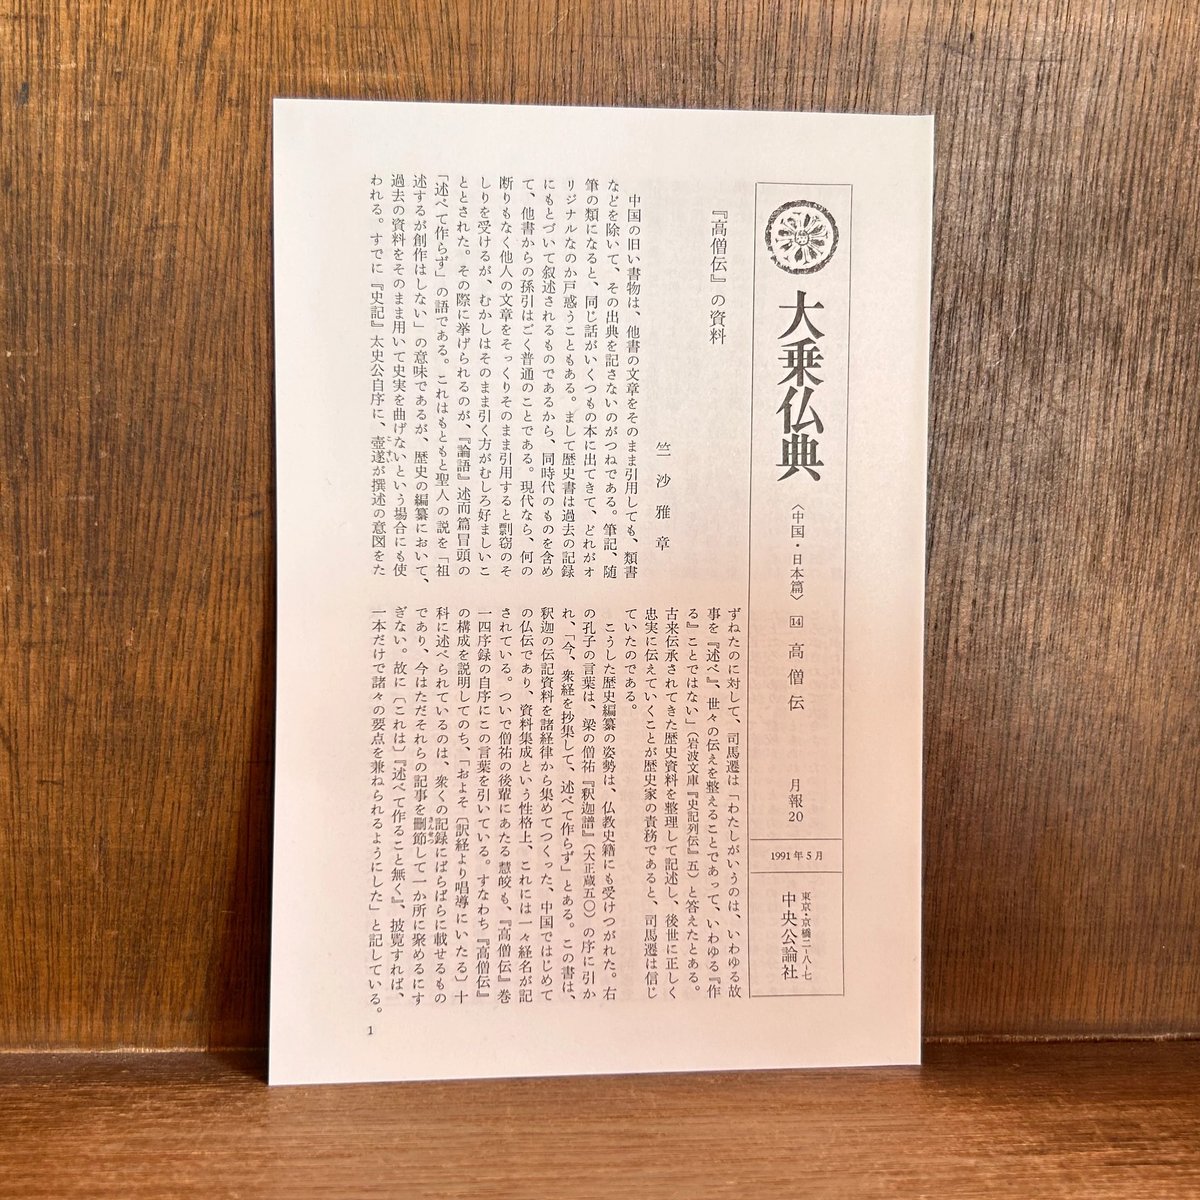 大乗仏典
〈中国・日本篇〉
14
高僧伝
月報20
1991年5月
東京・京橋二-八-七
中央公論社
『高僧伝』の資料
竺沙雅章
中国の旧い書物は、他書の文章をそのまま引用しても、類書
などを除いて、その出典を記さないのがつねである。筆記、随
筆の類になると、同じ話がいくつもの本に出てきて、どれがオ
リジナルなのか戸惑うこともある。まして歴史書は過去の記録
にもとづいて叙述されるものであるから、同時代のものを含め
て、他書からの孫引はごく普通のことである。現代なら、何の
断りもなく他人の文章をそっくりそのまま引用すると剽窃のそ
しりを受けるが、むかしはそのまま引く方がむしろ好ましいこ
ととされた。その際に挙げられるのが、『論語』述而篇冒頭の
「述べて作らず」の語である。これはもともと聖人の説を「祖
述するが創作はしない」の意味であるが、歴史の編纂において、
過去の資料をそのまま用いて史実を曲げないという場合にも使
われる。すでに『史記』太史公自序に、壺遂が撰述の意図をた
ずねたのに対して、司馬遷は「わたしがいうのは、いわゆる故
事を『述べ』、世々の伝えを整えることであって、いわゆる『作
る』ことではない」(岩波文庫『史記列伝』五)と答えたとある。
古来伝承されてきた歴史資料を整理して記述し、後世に正しく
忠実に伝えていくことが歴史家の責務であると、司馬遷は信じ
ていたのである。
こうした歴史編纂の姿勢は、仏教史籍にも受けつがれた。右
の孔子の言葉は、梁の僧祐『釈迦譜』(大正蔵五〇)の序に引か
れ、「今、衆経を抄集して、述べて作らず」とある。この書は、
釈迦の伝記資料を諸経律から集めてつくった、中国ではじめて
の仏伝であり、資料集成という性格上、これには一々経名が記
されている。ついで僧祐の後輩にあたる慧皎も、『高僧伝』巻
一四序録の自序にこの言葉を引いている。すなわち『高僧伝』
の構成を説明してのち、「およそ〔訳経より唱導にいたる〕十
科に述べられているのは、衆くの記録にばらばらに載せるもの
であり、今はただそれらの記事を刪節して一か所に聚めるにす
ぎない。故に〔これは〕『述べて作ること無く』、披覧すれば、
一本だけで諸々の要点を兼ねられるようにした」と記している。
1